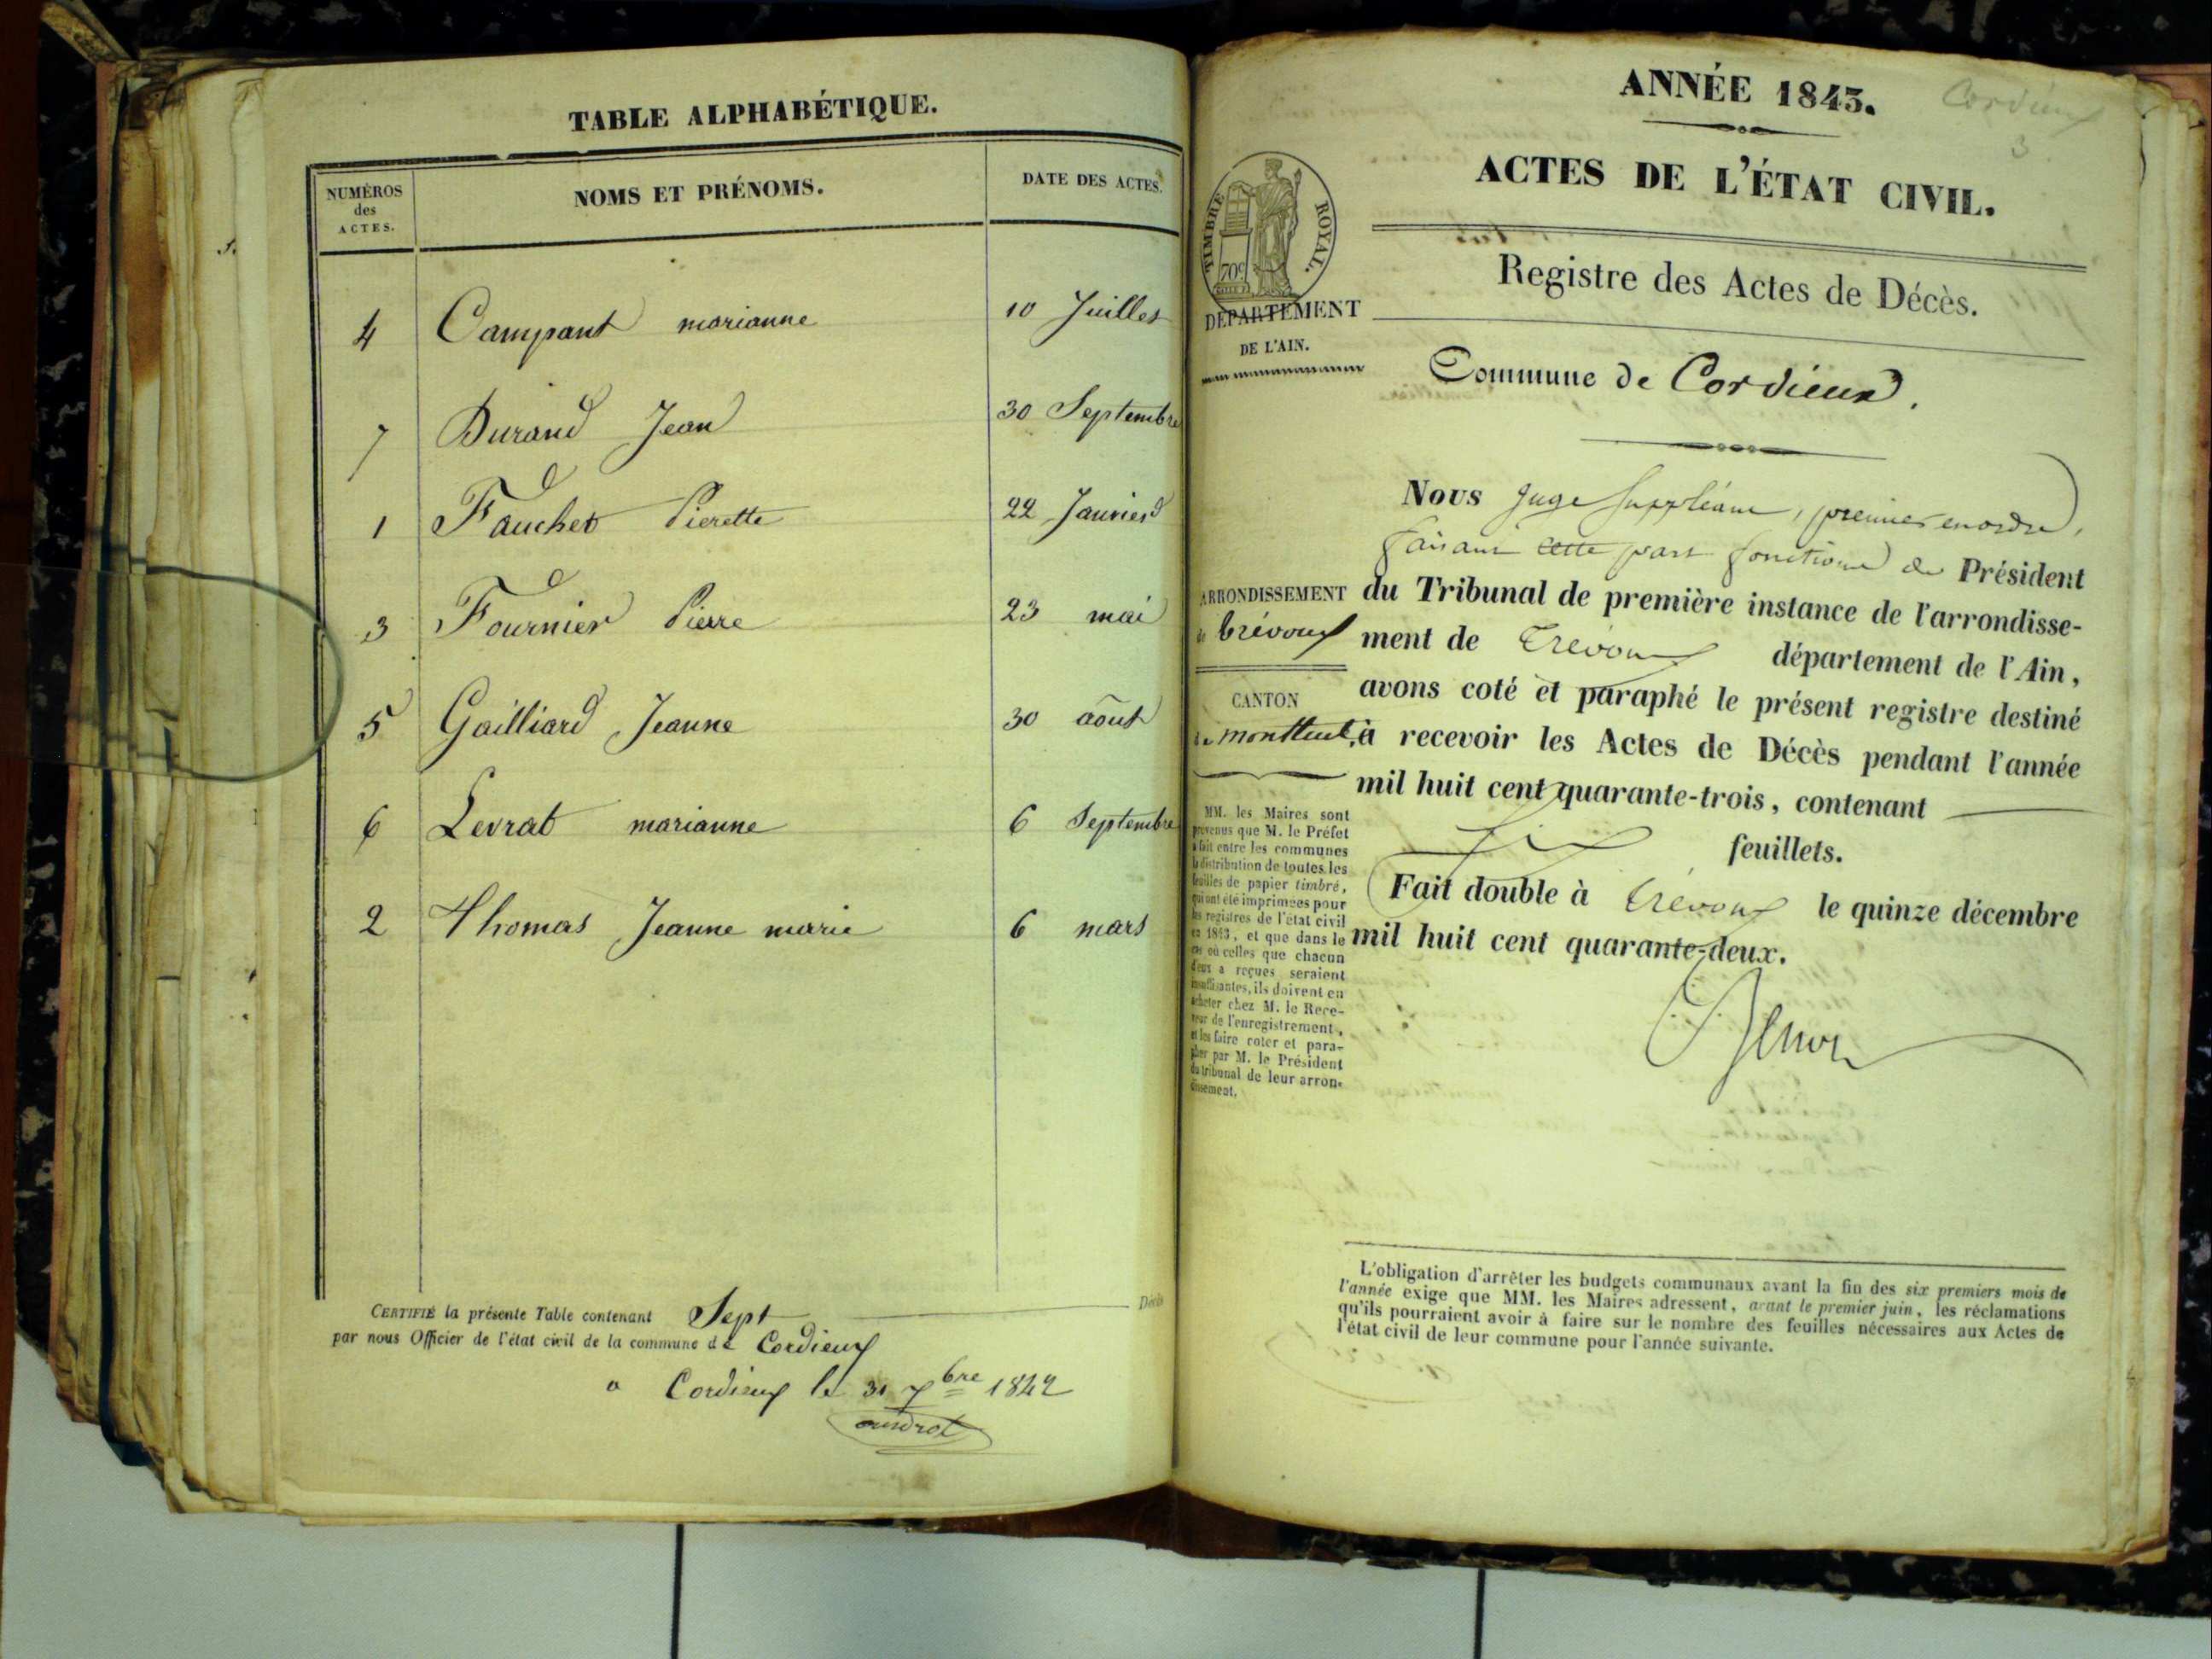 TABLE ALPHABÉTIQUE.
NUMÉROS
des
ACTES.
NOMS ET PRÉNOMS.
DATE DES ACTES.
4 Campant marianne 10 Juillet
7 Durand Jean 30 Septembre
1 Fauchet Pierette 22 Janvier
3 Fournier Pierre 23 mai
5 Gailliard Jeanne 30 août
6 Levrat marianne 6 Septembre
2 Thomas Jeanne marie 6 mars
CERTIFIÉ la présente Table contenant Sept Décès
par nous Officier de l'état civil de la commune de Cordieux
a Cordieux le 31 bre 1842
ANNÉE 1843.
Cordieux
3
ACTES DE L'ÉTAT CIVIL.
TIMBRE ROYAL.
70c
DÉPARTEMENT
DE L'AIN.
Registre des Actes de Décès.
Commune de Cordieux.
Nous Juge Suppléant, premier en ordre,
faisant cette part fonctions de Président
ARRONDISSEMENT
de trévoux
CANTON
de montluel,
du Tribunal de première instance de l'arrondisse-
ment de Trévoux département de l'Ain,
avons coté et paraphé le présent registre destiné
à recevoir les Actes de Décès pendant l'année
mil huit cent quarante-trois, contenant
feuillets.
Fait double à Trévoux le quinze décembre
mil huit cent quarante-deux.
MM. les Maires sont
prévenus que M. le Préfet
a fait entre les communes
la distribution de toutes les
feuilles de papier timbré,
qui ont été imprimées pour
les registres de l'état civil
en 1843, et que dans le
cas où celles que chacun
d'eux a reçues seraient
insuffisantes, ils doivent en
acheter chez M. le Rece-
veur de l'enregistrement,
et les faire coter et para-
pher par M. le Président
du tribunal de leur arron-
dissement.
L'obligation d'arrêter les budgets communaux avant la fin des six premiers mois de
l'année exige que MM. les Maires adressent, avant le premier juin, les réclamations
qu'ils pourraient avoir à faire sur le nombre des feuilles nécessaires aux Actes de
l'état civil de leur commune pour l'année suivante.